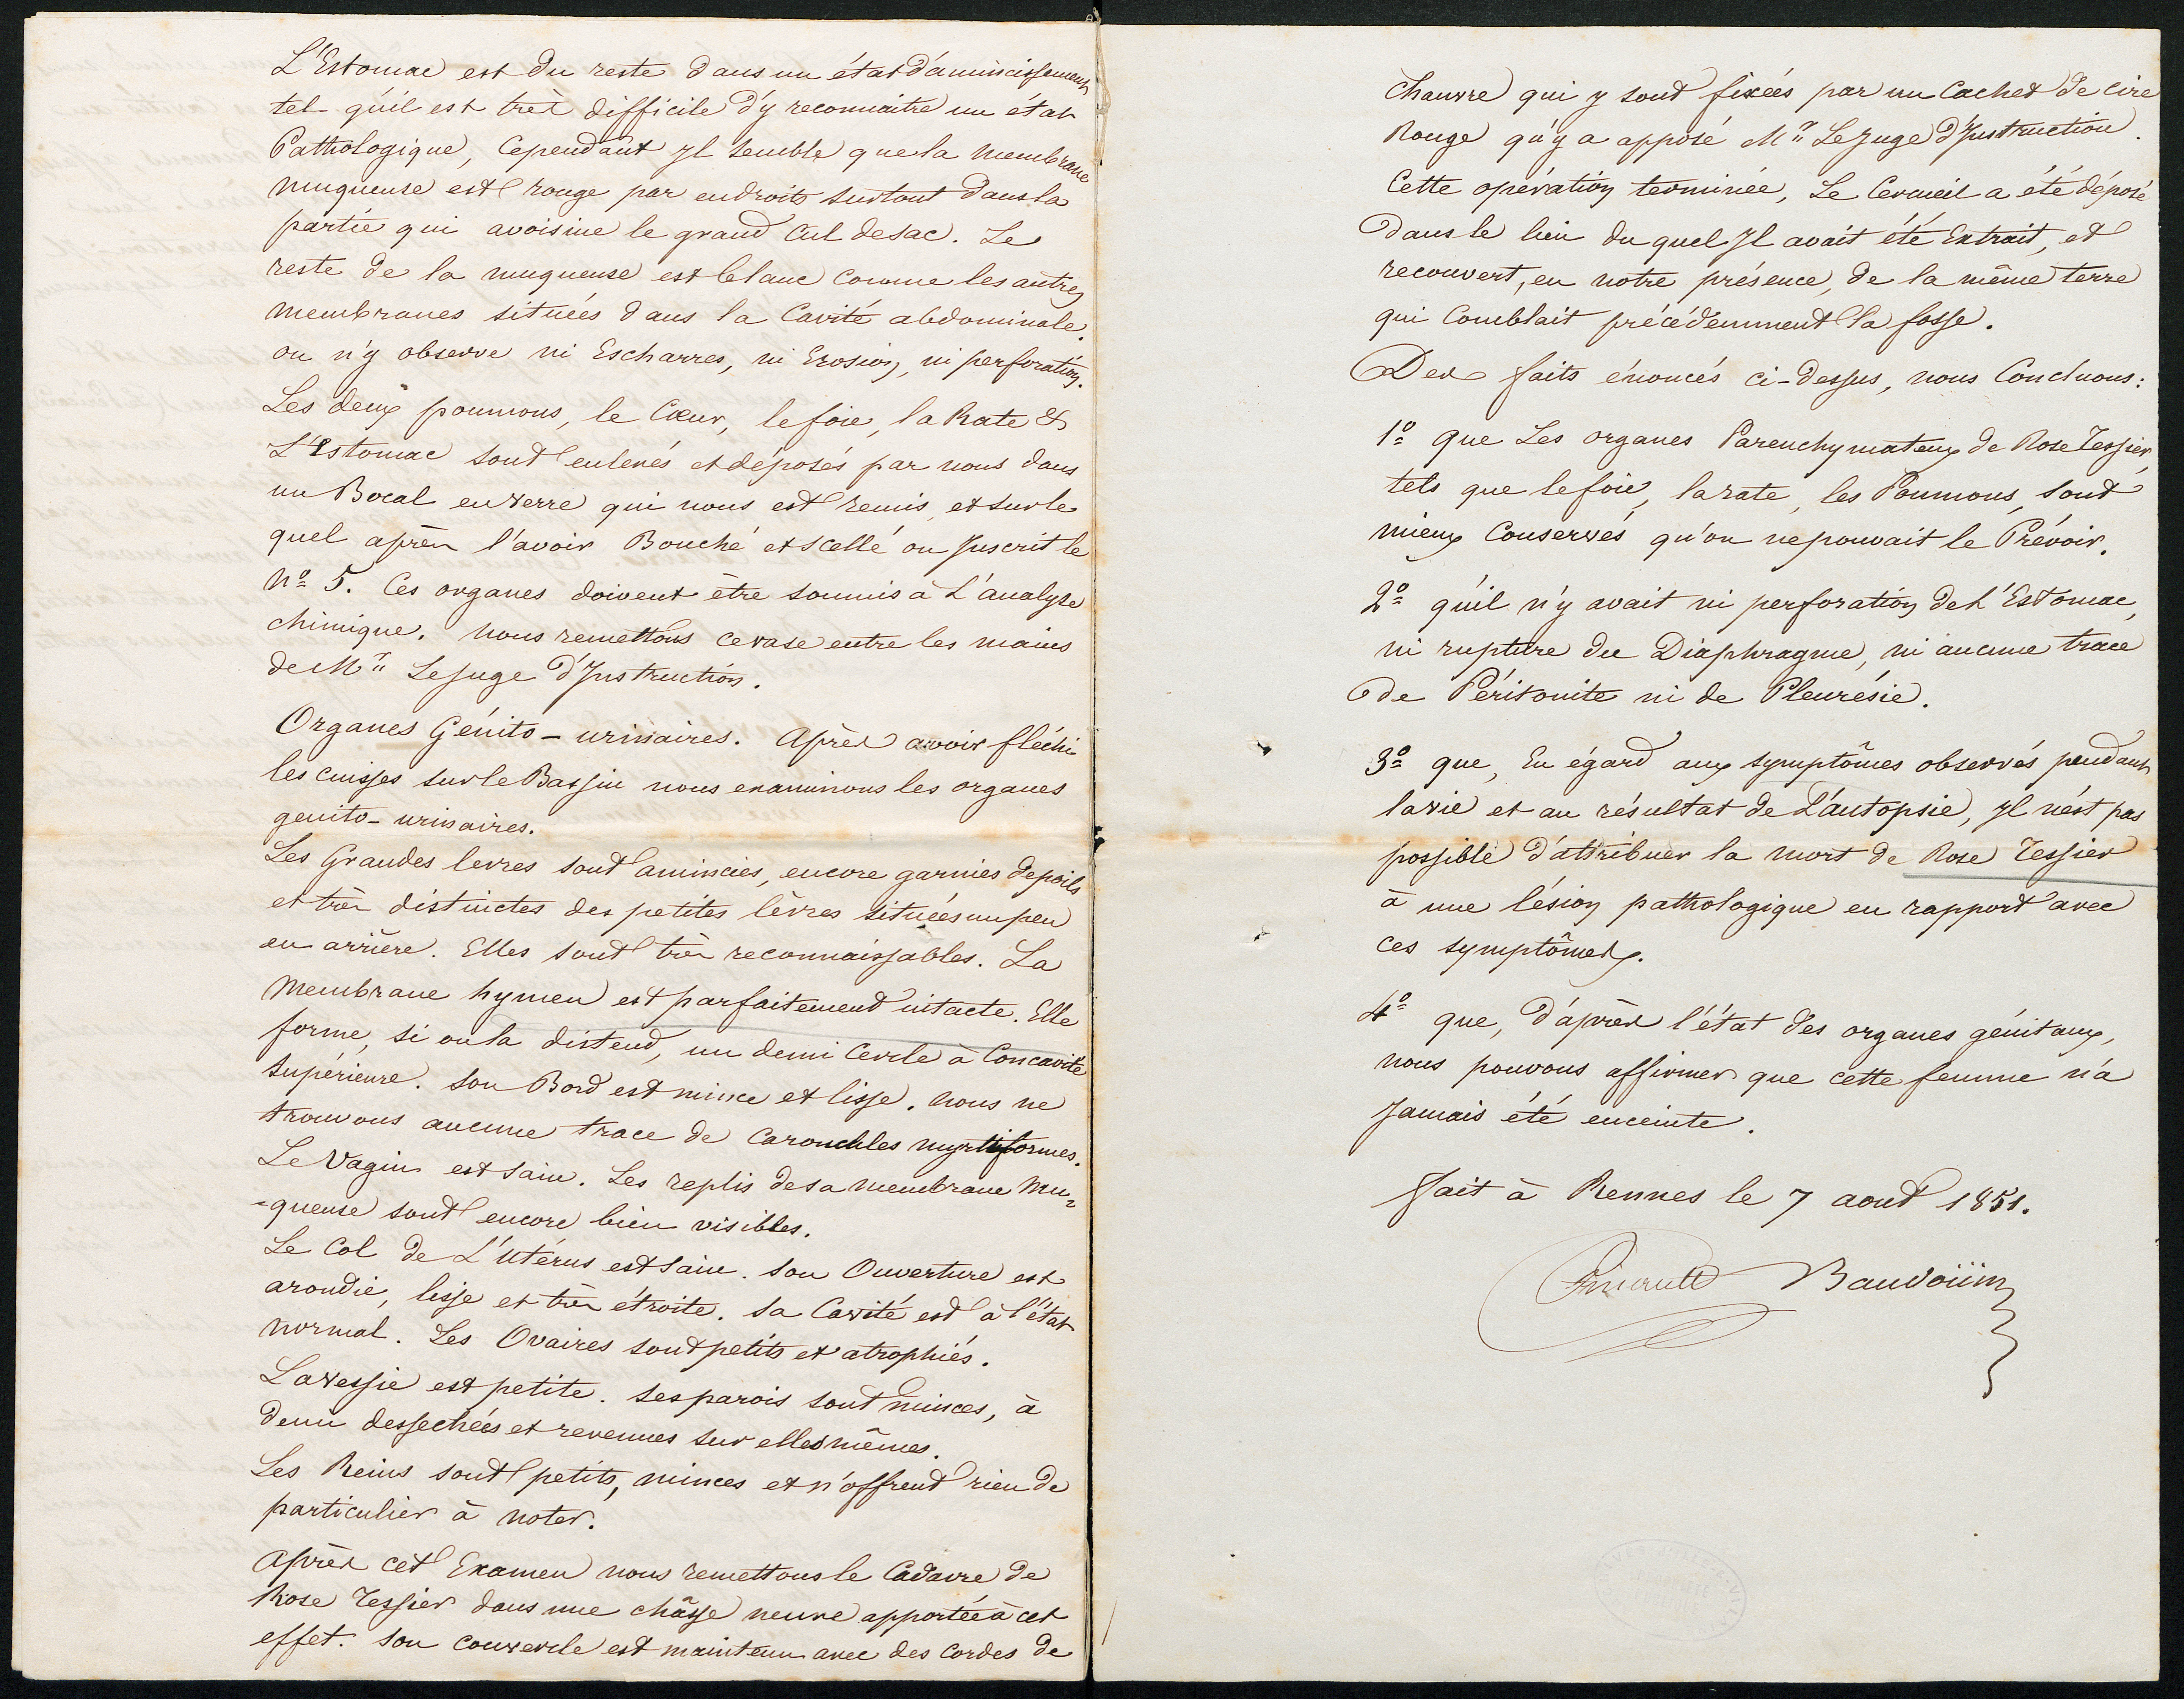 L'Estomac est du reste dans un état d'amincissement
tel qu'il est très difficile d'y reconnaitre un état
Pathologique, Cependant Il semble que la membrane
muqueuse est rouge par endroits surtout dans la
partie qui avoisine le grand Cul de sac. Le
reste de la muqueuse est blanc comme les autres
membranes situées dans la Cavité abdominale.
on n'y observe ni Escharres, ni Erosion, ni perforation.
Les deux poumons, le Cœur, le foie, la Rate &
L'Estomac sont enlevés et déposés par nous dans
un Bocal en verre qui nous est remis, et sur le
quel après l'avoir Bouché et scellé on Inscrit le
n° 5. Ces organes doivent être soumis à L'analyse
chimique. nous remettons ce vase entre les mains
de Mr Le Juge d'Instruction.
Organes Génito-urinaires. Après avoir fléchi
les cuisses sur le Bassin nous examinons les organes
genito-urinaires.
Les Grandes levres sont amincies, encore garnies de poils
et très distinctes des petites lèvres situées un peu
en arrière. Elles sont très reconnaissables. La
Membrane hymen est parfaitement intacte. Elle
forme, si on la distend, un demi Cercle à Concavité
supérieure. son Bord est mince et lisse. nous ne
trouvons aucune trace de Caroncules myrtiformes.
Le Vagin est sain. Les replis de sa membrane Mu-
-queuse sont encore bien visibles.
Le Col de L'Utérus est sain. son Ouverture est
arondie, lisse et très étroite. sa Cavité est à l'état
normal. Les Ovaires sont petits et atrophiés.
La vessie est petite. ses parois sont minces, à
demi dessechées et revenues sur elles mêmes.
Les Reins sont petits, minces et n'offrent rien de
particulier à noter.
Après cet Examen nous remettons le Cadavre de
Rose Tessier dans une châsse neuve apportée à cet
effet. son couvercle est maintenu avec des Cordes de
chanvre qui y sont fixées par un Cachet de cire
Rouge qu'y a apposé Mr Le Juge d'Instruction.
Cette opération terminée, Le Cercueil a été déposé
dans le lieu du quel Il avait été Extrait, et
recouvert, en notre présence, de la même terre
qui Comblait précédemment la fosse.
Des faits énoncés ci-dessus, nous Concluons:
1° que Les organes Parenchymateux de Rose Tessier,
tels que le foie, la rate, les Poumons, sont
mieux Conservés qu'on ne pouvait le Prévoir.
2° qu'il n'y avait ni perforation de L'Estomac,
ni rupture du Diaphragme, ni aucune trace
de Péritonite ni de Pleurésie.
3° que, Eu égard aux symptômes observés pendant
la vie et au résultat de L'autopsie, Il n'est pas
possible d'attribuer la mort de Rose Tessier
à une lésion pathologique en rapport avec
ces symptômes.
4° que, d'après l'état des organes génitaux,
nous pouvons affirmer que cette femme n'a
Jamais été enceinte.
Fait à Rennes le 7 aout 1851.
Pinault Baudoüin